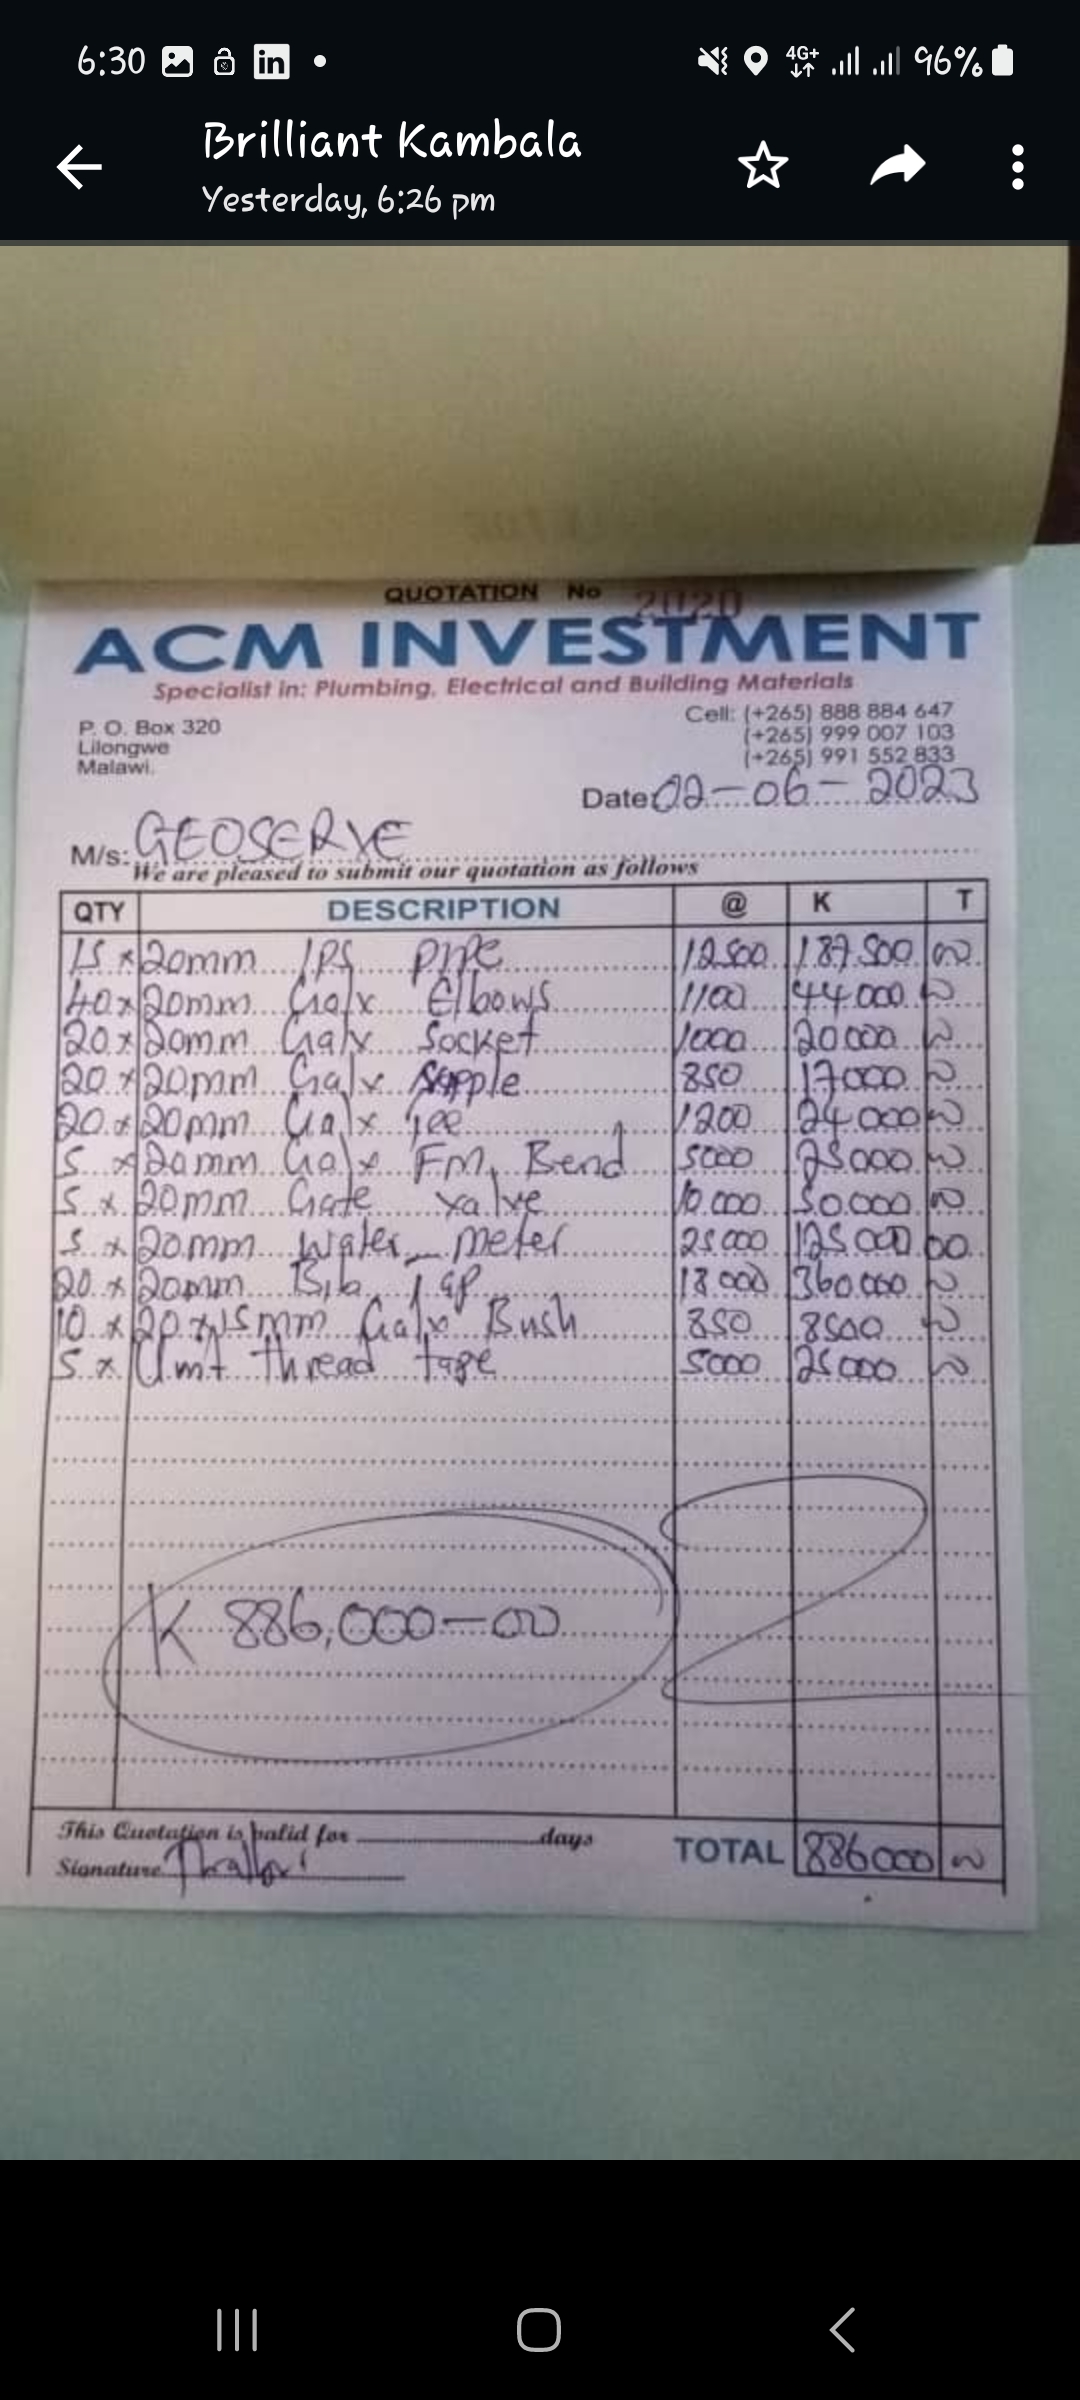 6:30 96%
4G+
Brilliant Kambala
Yesterday, 6:26 pm
QUOTATION No 2020
ACM INVESTMENT
Specialist in: Plumbing, Electrical and Building Materials
P. O. Box 320
Lilongwe
Malawi.
Cell: (+265) 888 884 647
(+265) 999 007 103
(+265) 991 552 833
Date: 02-06-2023
M/s: GEOSERVE
We are pleased to submit our quotation as follows
QTY DESCRIPTION @ K T
15 x 20mm IPS pipe 12500 187.500 00
40 x 20mm Galv Elbows 1100 44.000 00
20 x 20mm Galv Socket 1000 20000 00
20 x 20mm Galv Nipple 850 17000 00
20 x 20mm Galv Tee 1200 24.000 00
5 x 20mm Galv FM Bend 5000 25000 00
5 x 20mm Gate valve 10.000 50.000 00
5 x 20mm Water meter 25000 125000 00
20 x 20mm Bib Tap 18000 360.000 00
10 x 20 x 15mm Galv Bush 850 8500 00
5 x Unit thread tape 5000 25000 00
K 886,000-00
This Quotation is valid for days
Signature
TOTAL 886000 00